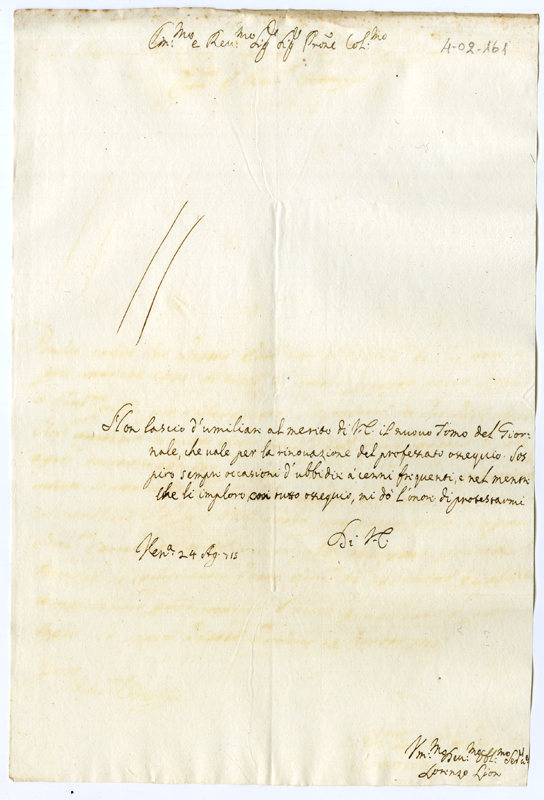 Em.mo e Reu.mo Sig.r Sig.r Prone Col.mo
4-02-161
Non lascio d'umiliare al merito di V.E. il nuouo Tomo del Gior-
nale, che uale per la rinouazione del professato ossequio. Sos
piro sempre occasioni d'ubbidire a' cenni frequenti, e nel mentre
che li imploro, con tutto ossequio, mi dò l'onore di protestarmi
Di V.E.
Ven.a 24 Ag. 715
Um.mo Deu.mo Obl.mo
Lorenzo Lion